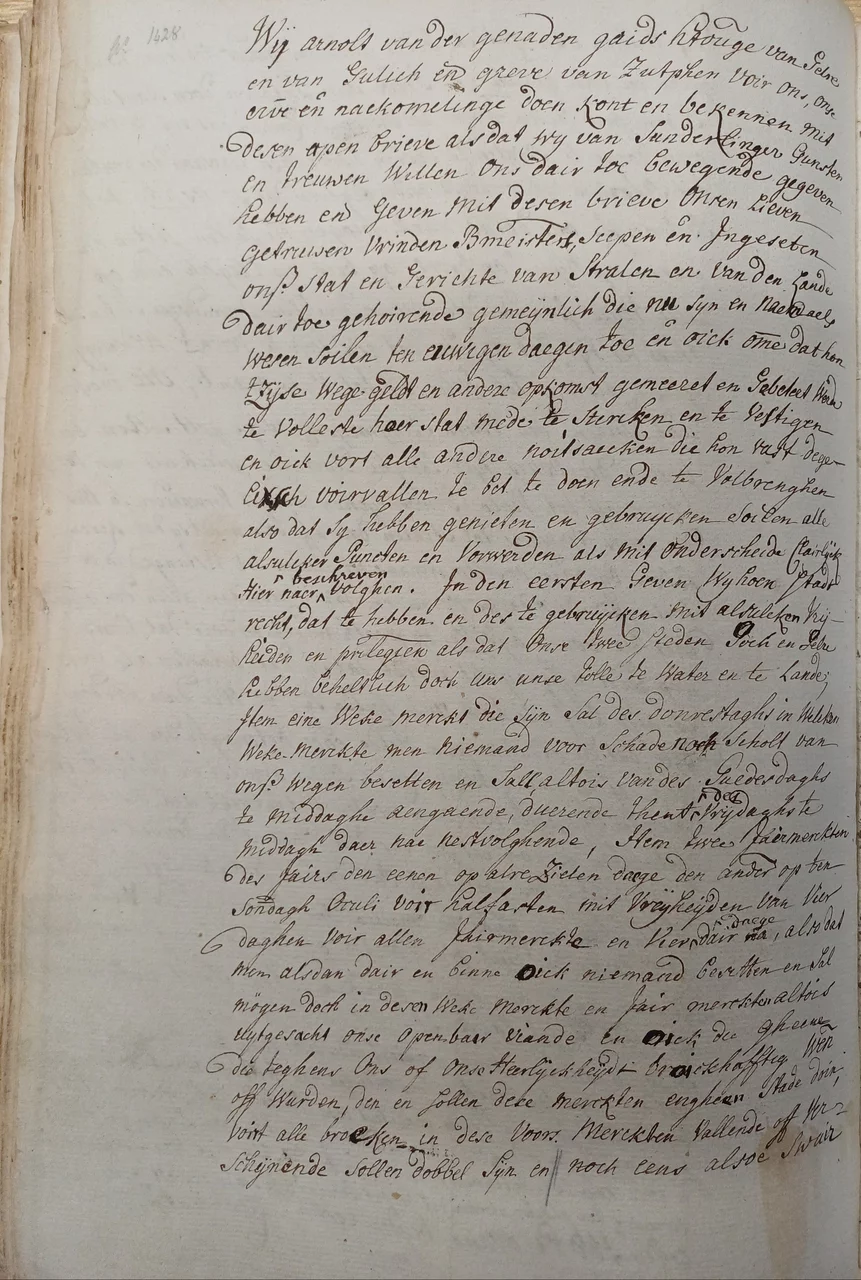 1428
Wij arnolt van der genaden gaids htouge van Gelre
en van Gulich eñ greve van Zutphen voir ons, onse
erve eñ naekomelinge doen kont en bekennen mit
desen open brieve als dat wy van Sunderlinger Gunsten
en treuwen Willen Ons dair toe bewegende gegeven
hebben en Geven mit desen brieve Onsen Lieven
getruwen Vrinden Bmeisters, Scepen eñ Ingeseten
onß stat en Gerichte van Stralen en van den Lande
dair toe gehoirende gemeÿnlich die nu syn en naemaels
wesen soilen ten euwigen daegen toe eñ oick om̄e dat hon
tZijse wege-geldt en andere opkomst gemeeret en Gebetert
te volleste hoer stat mede te stercken en te Vestigen
en oick vort alle andere noitsaecken die hon vast dege-
voirvallen te bet te doen ende te Volbrenghen
also dat sy hebben genieten en gebruycken Soilen alle
alsulcker Puncten en Vorwerden als mit Onderscheide Clairlyck
Hier naer beschreven volghen. In den eersten Geven Wy hoen Stadt
recht, dat te hebben en des te gebruijcken mit alsulcken Vrij-
heiden en prilegien als dat Onse twee steden Goch en Gelre
hebben beheltlich doch uns unse tolle te Water en te Lande;
Item eine Weke merckt die Sijn Sal des donrestaghs in Welcken
Weke-merckte men Niemand voor Schade noch Scholt van
onß wegen besetten en Sall, altois van des Guedesdaghs
te middaghe aengaende, duerende thent des Vrijdaghs te
middagh daer nae nestvolghende, Item twee Jairmerckten
des jairs den eenen op alre Zielen dage den ander op ten
Sondagh Oculi voir halfasten mit Vreijheijden van Vier
daghen voir allen Jhairmerckte en Vier daege dair na, also dat
men alsdan dair en binne oick niemand besetten en Sal
mögen doch in desen Weke Merckte en Jair merckten altois
uijtgesacht onse openbair viande en oick die gheene
die teghens Ons of onse Heerlijckheijdt broickhafftig
off Wurden, den en sollen dese merckten engheen Stade doin,
voirt alle broeken in dese Voors. Merckten Vallende off Ver=
schijnende sollen dobbel Sijn en noch eens alsoe swair